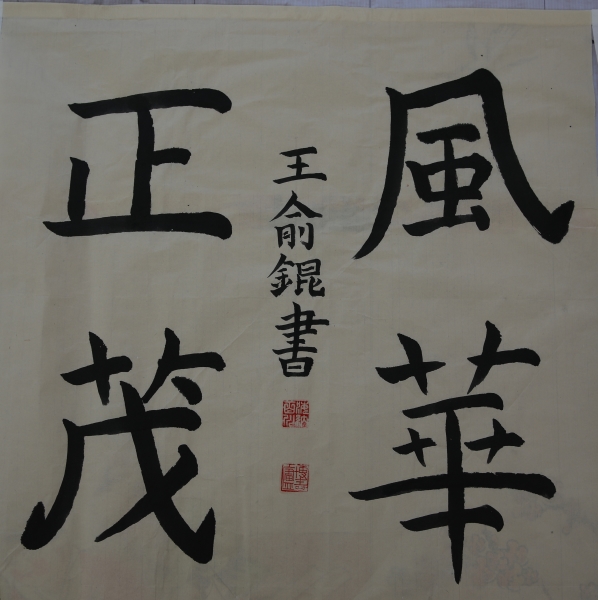 風華
正茂
王俞錕書